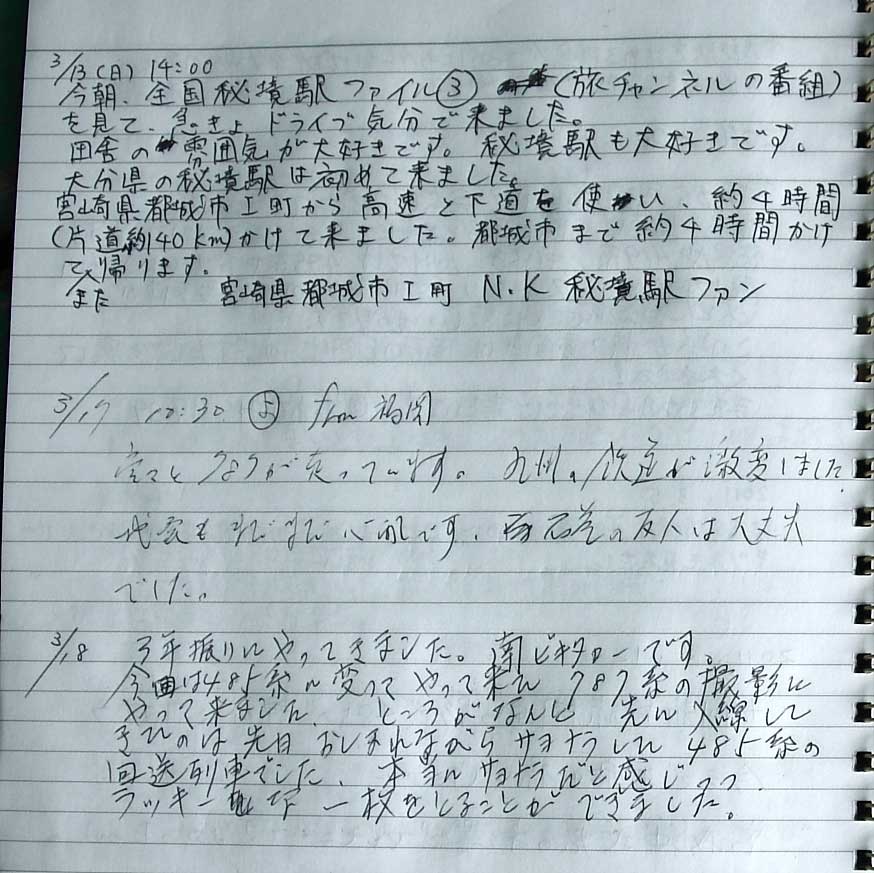 3/13(日) 14:00
今朝、全国秘境駅ファイル③ (旅チャンネルの番組)
を見て、急きょ ドライブ気分で来ました。
田舎の雰囲気が大好きです。秘境駅も大好きです。
大分県の秘境駅は初めて来ました。
宮崎県都城市工町から高速と下道を使い、約4時間
(片道約140km)かけて来ました。都城市まで約4時間かけ
て帰ります。
また 宮崎県都城市工町 N.K 秘境駅ファン
3/17 10:30 from 福岡
787が走っています。九州の鉄道が激変しました
心配です。の友人は大丈夫
でした。
3/18 3年振りにやってきました。南ビキターです。
今回は485系に変ってやって来た 787系の撮影に
やって来ました。ところがなんと 先に入線して
きたのは先日おしまれながらサヨナラした485系の
回送列車でした。本当にサヨナラだと感じつつ
ラッキー 一枚をとることができました。